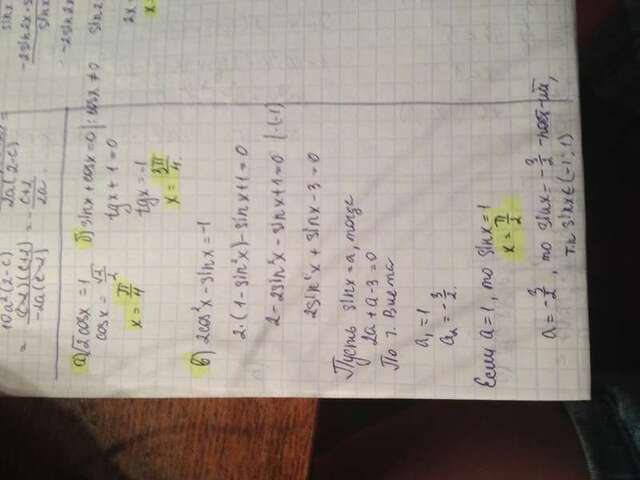 10a²(2-c)
2a(2-c)
= (c-2)(c+2) / -2a(c-2) = - c+2 / 2a.
-2sin2x
-2sin2x
sin2
2x =
а) √2 cosx = 1
cosx = √2/2
x = π/4
б) sinx + cosx = 0 |: cosx ≠ 0
tgx + 1 = 0
tgx = -1
x = 3π/4.
в) 2cos²x - sinx = -1
2·(1 - sin²x) - sinx + 1 = 0
2 - 2sin²x - sinx + 1 = 0 |·(-1)
2sin²x + sinx - 3 = 0
Пусть sinx = a, тогда
2a + a - 3 = 0
По т. Виета
a₁ = 1
a₂ = -3/2.
Если a = 1, то sinx = 1
x = π/2
a = -3/2, то sinx = -3/2 -
т.к sinx ∈ (-1; 1)